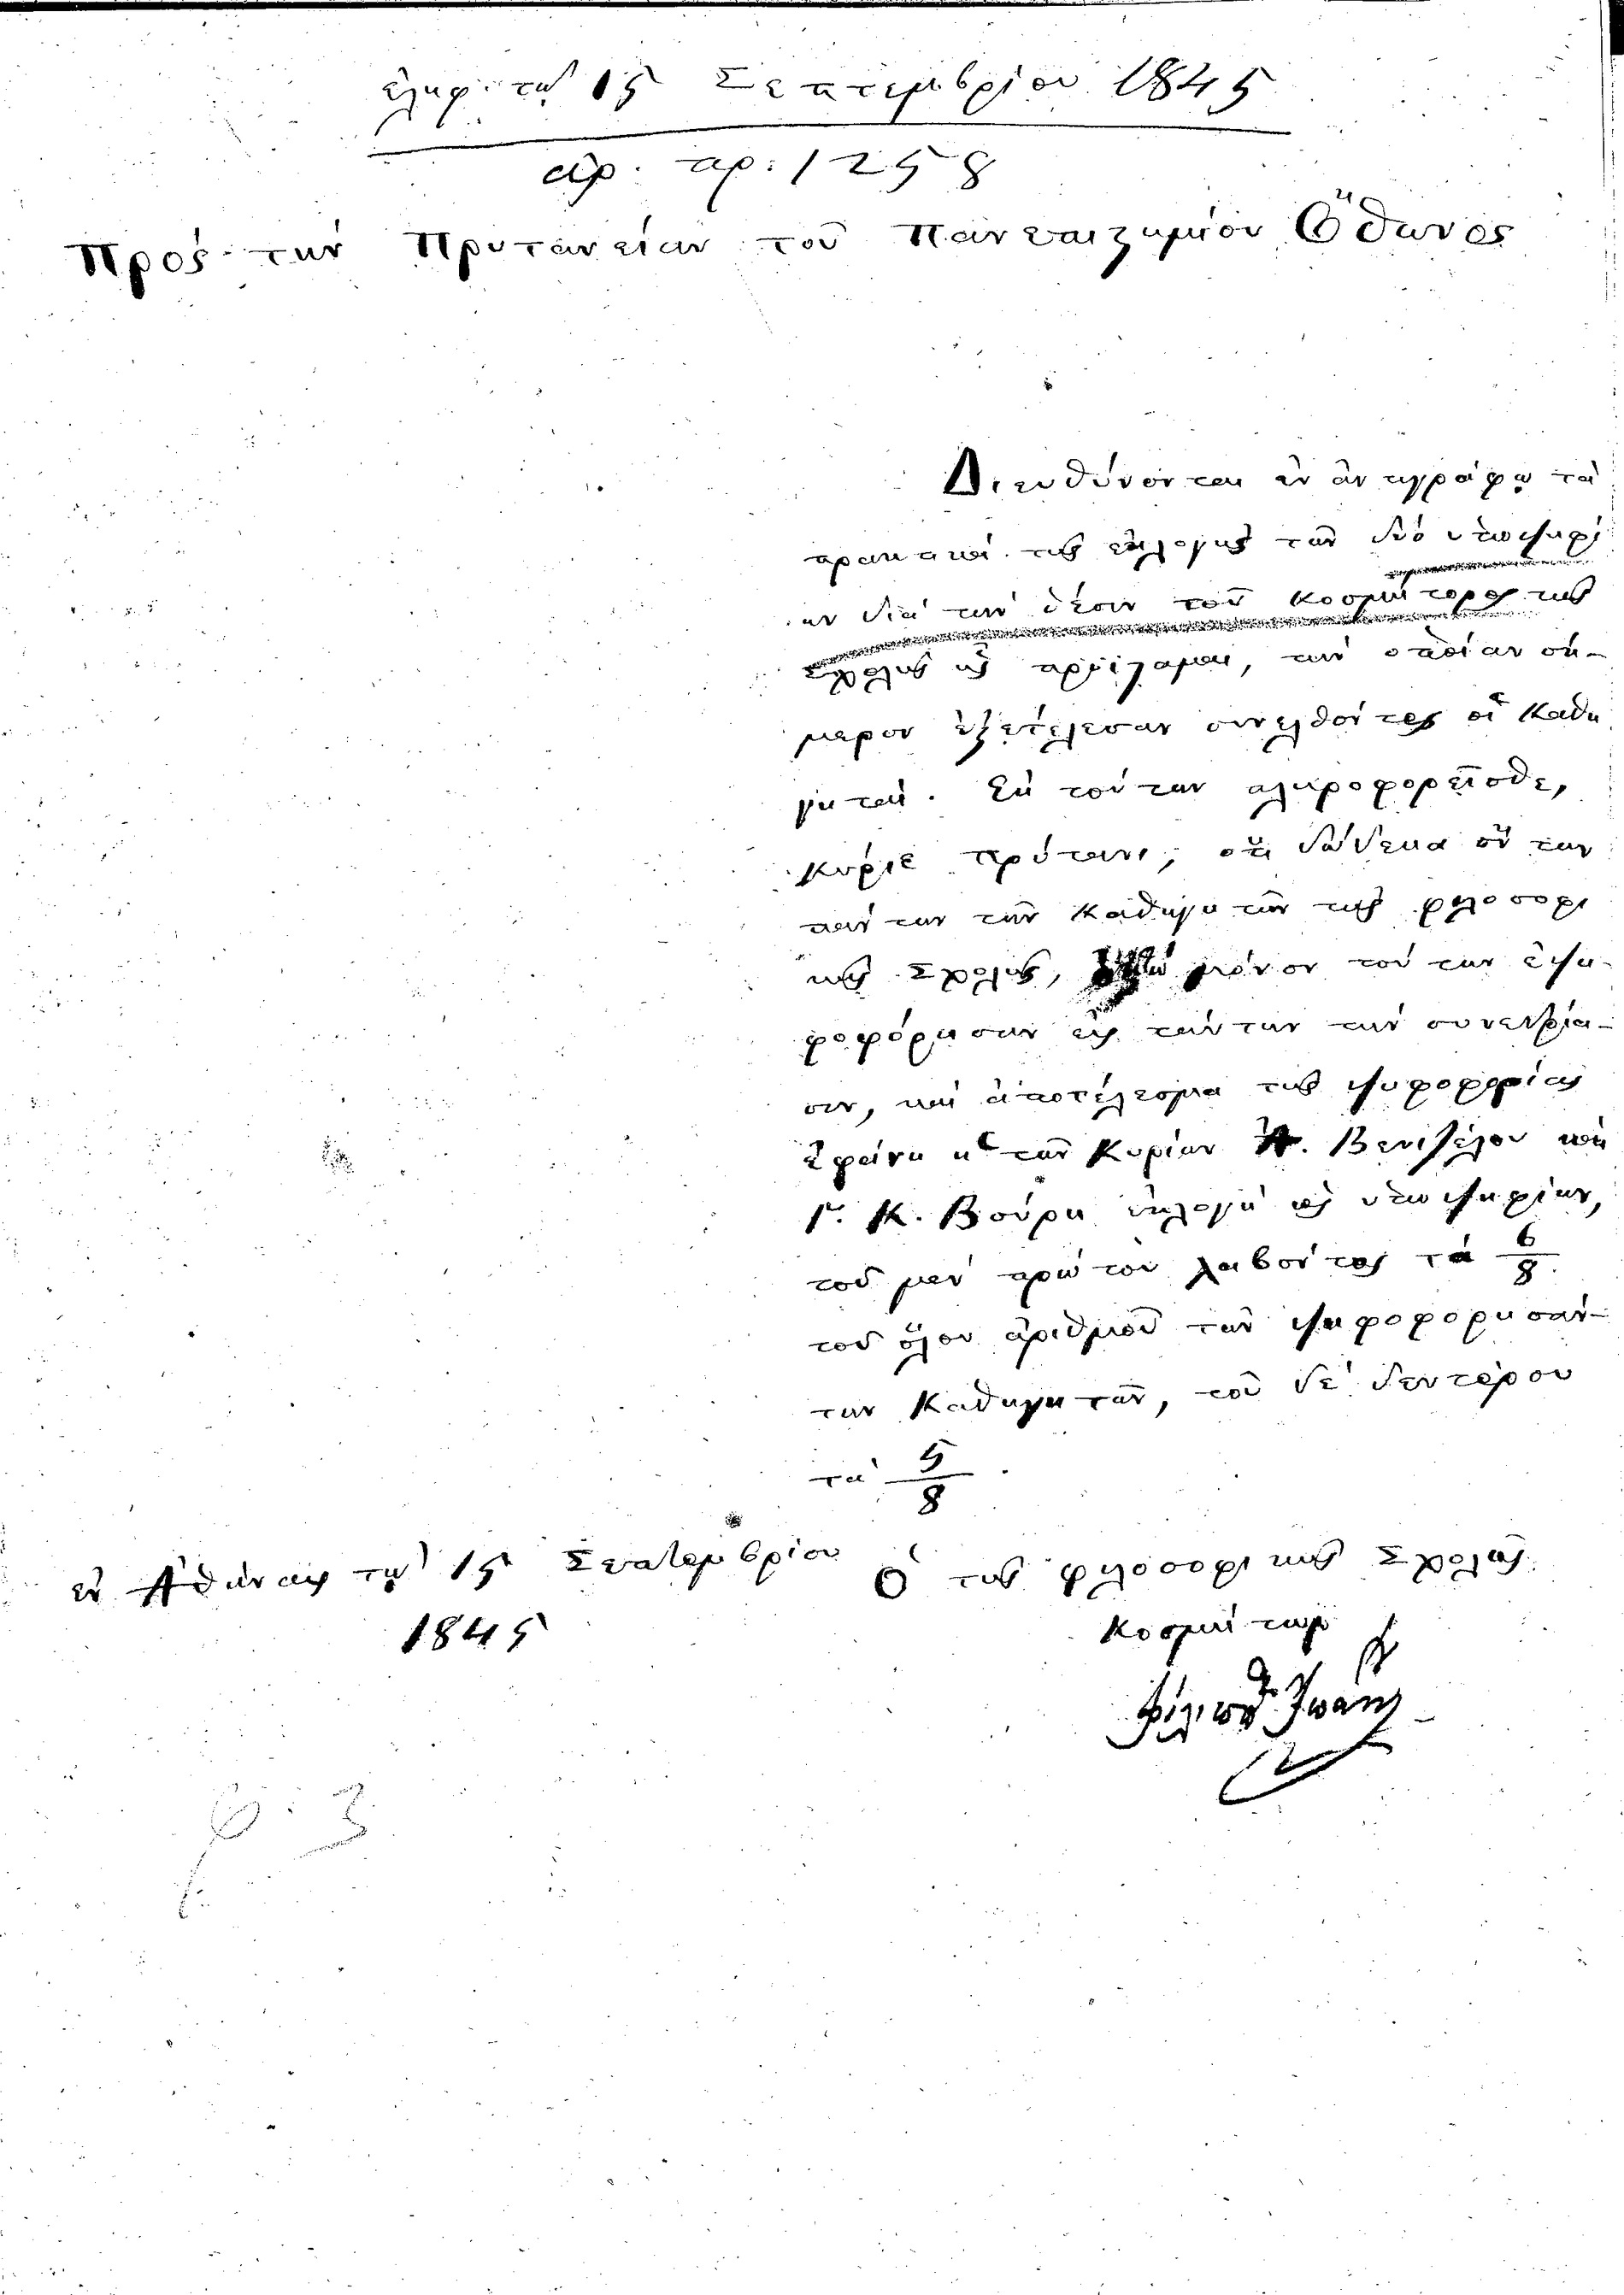 ἐλήφ. τῇ 15 Σεπτεμβρίου 1845
ἀρ. πρ: 1258
Πρὸς τὴν Πρυτανείαν τοῦ Πανεπιστημίου Ὄθωνος
Διευθύνονται ἐν ἀντιγράφῳ τὰ
πρακτικὰ τῆς ἐκλογῆς τῶν δύο ὑποψηφί
ων διὰ τὴν θέσιν τοῦ Κοσμήτορος τῆς
Σχολῆς ἧς προΐσταμαι, τὴν ὁποίαν σή-
μερον ἐξετέλεσαν συνελθόντες οἱ Καθη
γηταί. Ἐκ τούτων πληροφορεῖσθε,
Κύριε Πρύτανι, ὅτι δώδεκα ὄντων
πάντων τῶν Καθηγητῶν τῆς φιλοσοφι
κῆς Σχολῆς, μόνον τούτων ἐψη-
φοφόρησαν εἰς ταύτην τὴν συνεδρία-
σιν, καὶ ἀποτέλεσμα τῆς ψηφοφορίας
ἐφάνη ἡ τῶν Κυρίων Βενθύλου καὶ
Γ. Κ. Βούρη ἐκλογὴ ὡς ὑποψηφίων,
τοῦ μὲν πρώτου λαβόντος τὰ 6/8
τοῦ ὅλου ἀριθμοῦ τῶν ψηφοφορησάν-
των Καθηγητῶν, τοῦ δὲ δευτέρου
τὰ 5/8.
ἐν Ἀθήναις τῇ 15 Σεπτεμβρίου
1845
Ὁ τῆς φιλοσοφικῆς Σχολῆς
Κοσμήτωρ
Φίλιππ. Ἰωάν